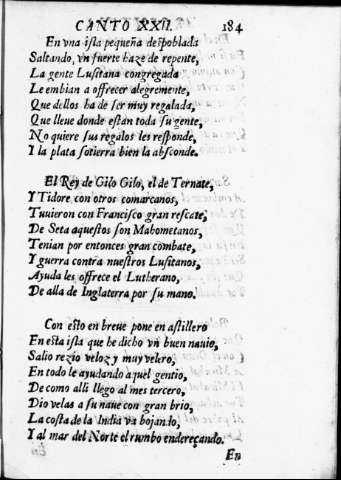 CANTO XXII. 184
En vna isla pequeña despoblada
Saltando, vn fuerte haze de repente,
La gente Lusitana congregada
Le embian a offrecer alegremente,
Que dellos ha de ser muy regalada,
Que lleue donde estan toda su gente,
No quiere sus regalos les responde,
Y la plata sotierra bien la absconde.
El Rey de Gilo Gilo, el de Ternate,
Y Tidore con otros comarcanos,
Tuuieron con Francisco gran rescate,
De Seta aquestos son Mahometanos,
Tenian por entonces gran combate,
Y guerra contra nuestros Lusitanos,
Ayuda les offrece el Lutherano,
De alla de Inglaterra por su mano.
Con esto en breue pone en astillero
En esta isla que he dicho vn buen nauio,
Salio rezio veloz y muy velero,
En todo le ayudando aquel gentio,
De como alli llego al mes tercero,
Dio velas a su naue con gran brio,
La costa de la India va bojando,
Y al mar del Norte el rumbo endereçando.
En